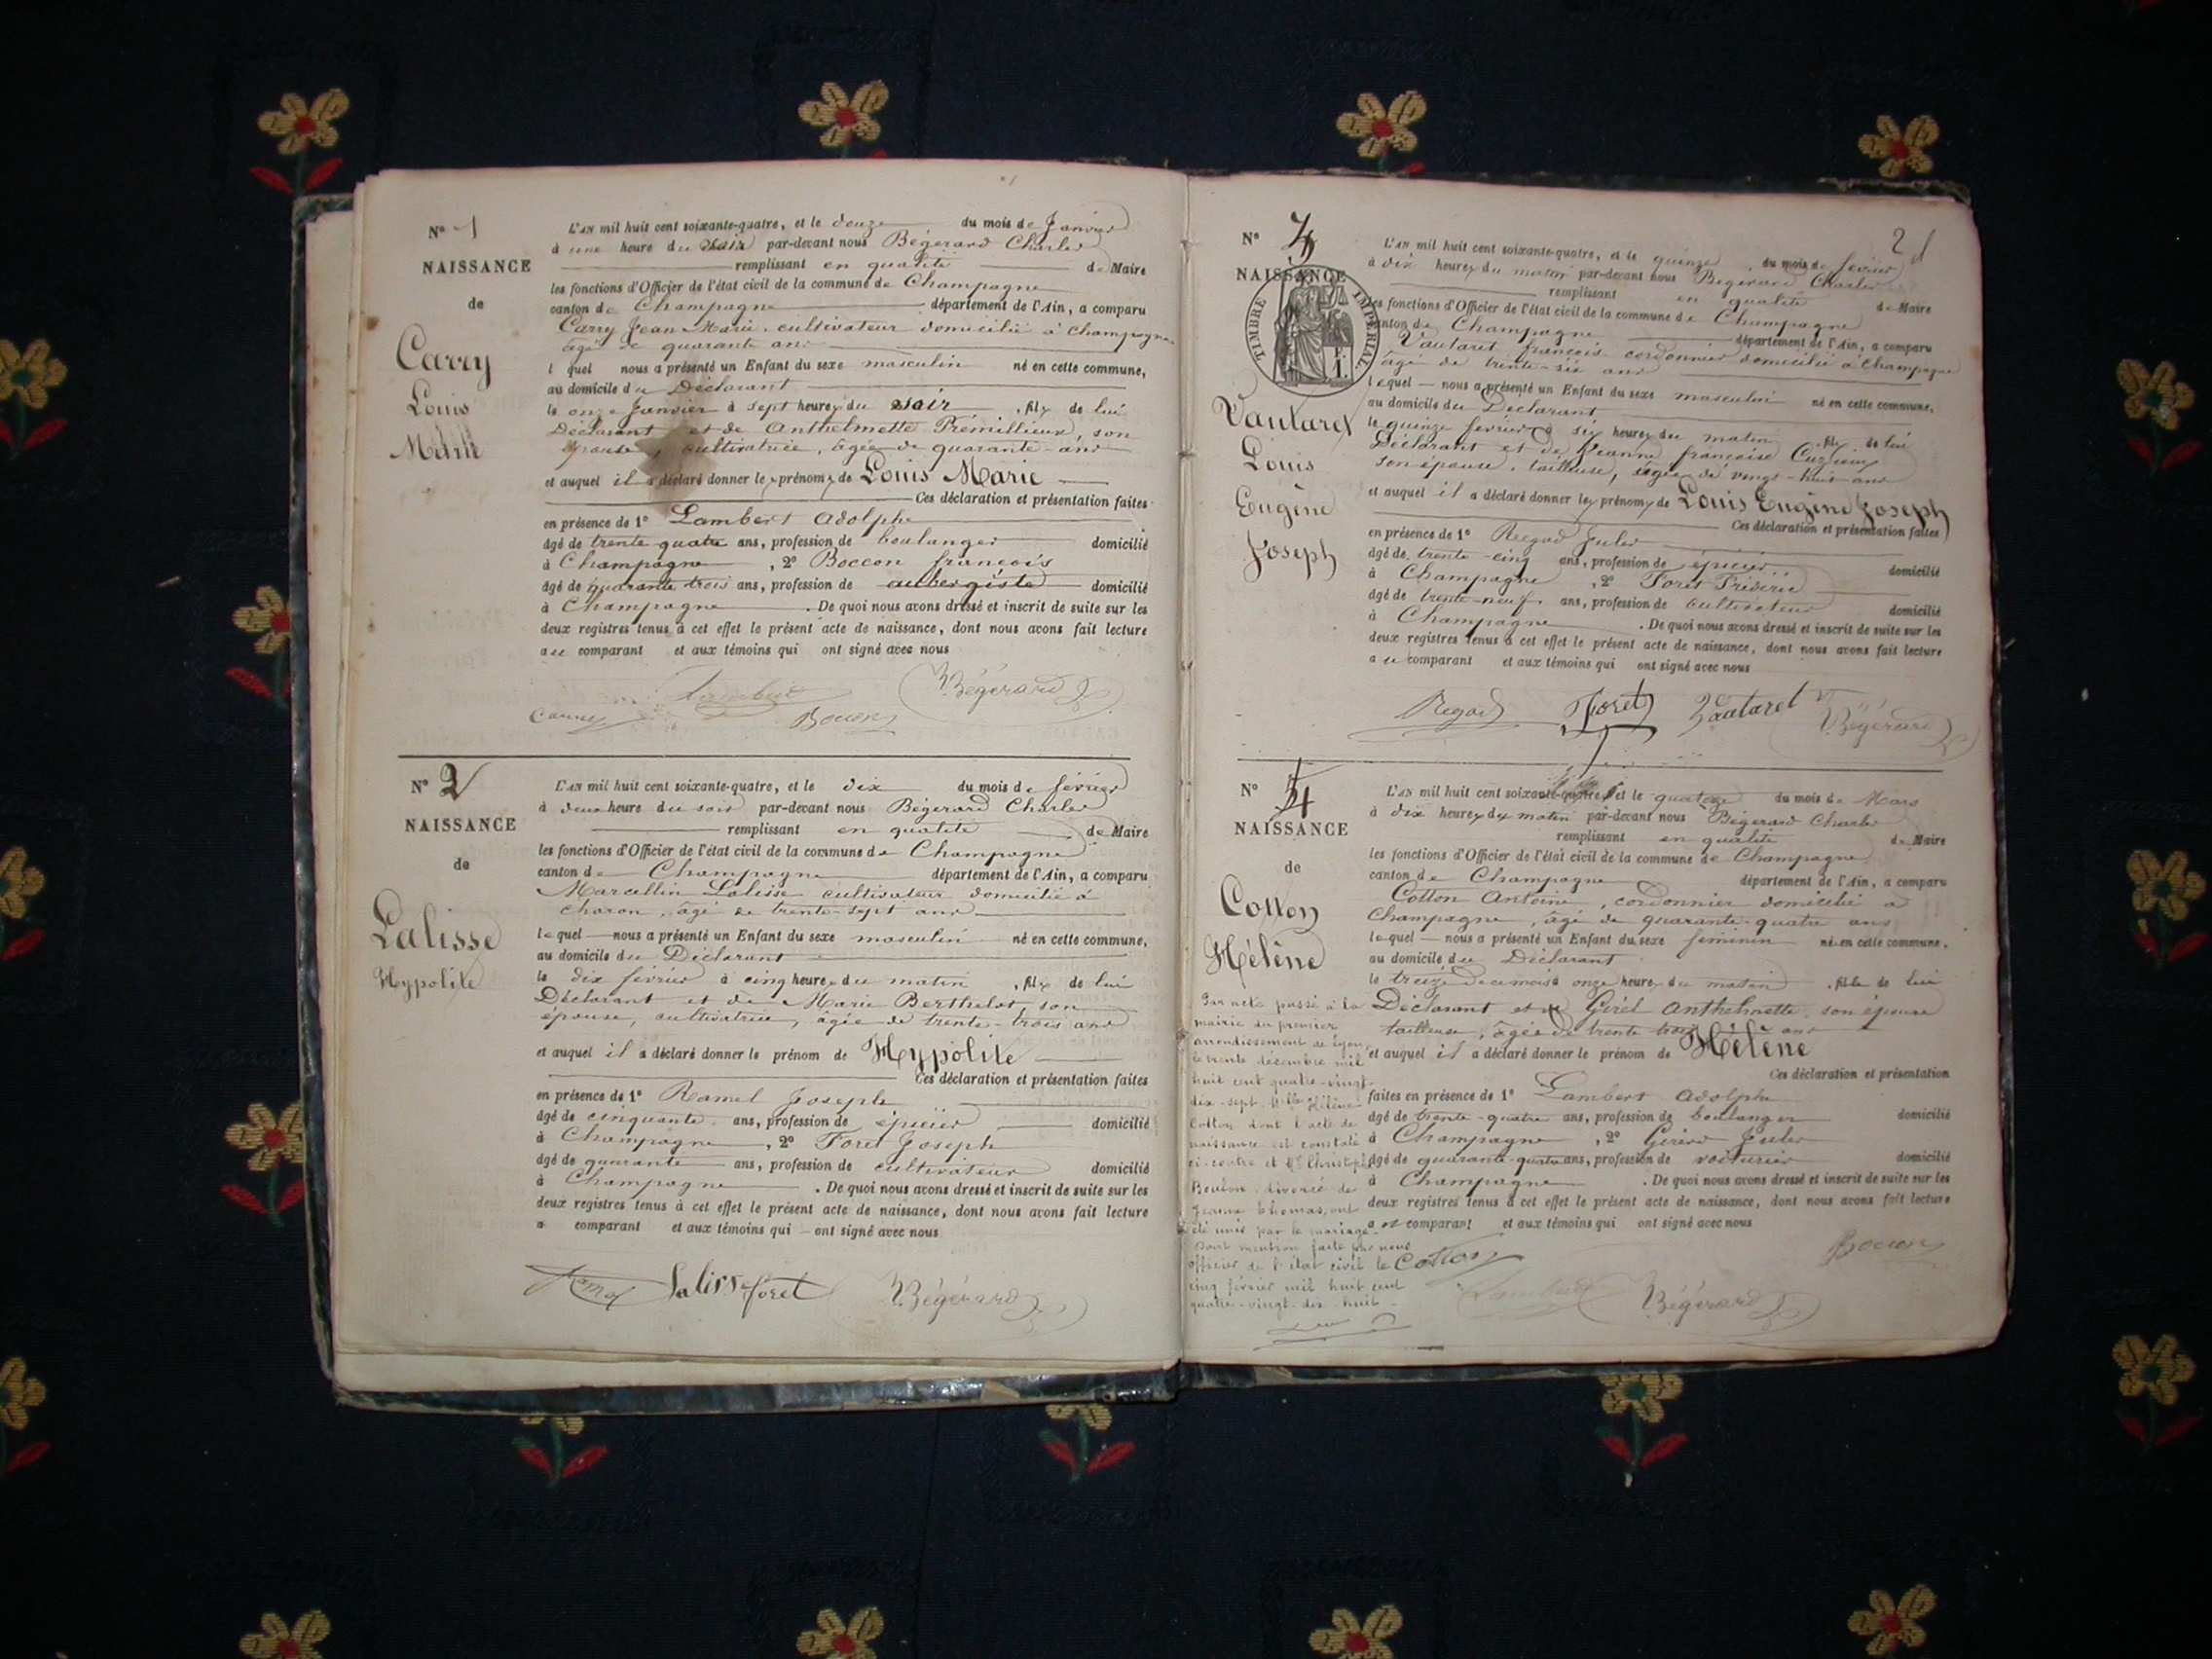 N° 1
NAISSANCE
de
Carry
Louis
Marie
L'AN mil huit cent soixante-quatre, et le douze du mois de Janvier
à une heure du soir par-devant nous Bégerard Charles
remplissant en qualité de Maire
les fonctions d'Officier de l'état civil de la commune de Champagne
canton de Champagne département de l'Ain, a comparu
Carry Jean Marie, cultivateur domicilié à Champagne
âgé de quarante ans
l quel nous a présenté un Enfant du sexe masculin né en cette commune,
au domicile du Déclarant
le onze Janvier à sept heures du soir, fils de lui
Déclarant et de Anthelmette Prémillieux, son
épouse, cultivatrice, âgée de quarante ans
et auquel il a déclaré donner les prénoms de Louis Marie
Ces déclaration et présentation faites
en présence de 1° Lambert Adolphe
âgé de trente quatre ans, profession de boulanger domicilié
à Champagne, 2° Boccon françois
âgé de quarante trois ans, profession de aubergiste domicilié
à Champagne. De quoi nous avons dressé et inscrit de suite sur les
deux registres tenus à cet effet le présent acte de naissance, dont nous avons fait lecture
au comparant et aux témoins qui ont signé avec nous
Lambert Bégerard
Carry Boccon
N° 2
NAISSANCE
de
Lalisse
Hypolite
L'AN mil huit cent soixante-quatre, et le dix du mois de février
à deux heure du soir par-devant nous Bégerard Charles
remplissant en qualité de Maire
les fonctions d'Officier de l'état civil de la commune de Champagne
canton de Champagne département de l'Ain, a comparu
Marcellin Lalisse cultivateur domicilié à
Charon, âgé de trente-sept ans
lequel nous a présenté un Enfant du sexe masculin né en cette commune,
au domicile du Déclarant
le dix février à cinq heures du matin, fils de lui
Déclarant et de Marie Berthelot, son
épouse, cultivatrice, âgée de trente-trois ans
et auquel il a déclaré donner le prénom de Hypolite
Ces déclaration et présentation faites
en présence de 1° Ramel Joseph
âgé de cinquante ans, profession de épicier domicilié
à Champagne, 2° Foret Joseph
âgé de quarante ans, profession de cultivateur domicilié
à Champagne. De quoi nous avons dressé et inscrit de suite sur les
deux registres tenus à cet effet le présent acte de naissance, dont nous avons fait lecture
a comparant et aux témoins qui ont signé avec nous
Ramel Lalisse foret Bégerard
2
N° 3
NAISSANCE
TIMBRE IMPERIAL
1 F.
Vautaret
Louis
Eugène
Joseph
L'AN mil huit cent soixante-quatre, et le quinze du mois de février
à dix heures du matin par-devant nous Bégerard Charles
remplissant en qualité de Maire
les fonctions d'Officier de l'état civil de la commune de Champagne
canton de Champagne département de l'Ain, a comparu
Vautaret françois cordonnier domicilié à Champagne
âgé de trente-six ans
lequel nous a présenté un Enfant du sexe masculin né en cette commune,
au domicile du Déclarant
le quinze février à six heures du matin, fils de lui
Déclarant et de Jeanne françoise
son épouse, tailleuse, âgée de vingt-huit ans
et auquel il a déclaré donner les prénoms de Louis Eugène Joseph
Ces déclaration et présentation faites
en présence de 1° Regad Jules
âgé de trente-cinq ans, profession de épicier domicilié
à Champagne, 2° Foret Fréderic
âgé de trente-neuf ans, profession de cultivateur domicilié
à Champagne. De quoi nous avons dressé et inscrit de suite sur les
deux registres tenus à cet effet le présent acte de naissance, dont nous avons fait lecture
au comparant et aux témoins qui ont signé avec nous
Regad Foret Vautaret Bégerard
N° 4
NAISSANCE
de
Cotton
Hélène
L'AN mil huit cent soixante-quatre, et le quatorze du mois de Mars
à dix heures du matin par-devant nous Bégerard Charles
remplissant en qualité de Maire
les fonctions d'Officier de l'état civil de la commune de Champagne
canton de Champagne département de l'Ain, a comparu
Cotton Antoine, cordonnier domicilié à
Champagne, âgé de quarante-quatre ans
lequel nous a présenté un Enfant du sexe féminin né en cette commune,
au domicile du Déclarant
le treize de ce mois à onze heures du matin, fille de lui
Déclarant et de Girel Anthelmette, son épouse
tailleuse, âgée de trente trois ans
et auquel il a déclaré donner le prénom de Hélène
Ces déclaration et présentation
faites en présence de 1° Lambert Adolphe
âgé de trente-quatre ans, profession de boulanger domicilié
à Champagne, 2° Girerd Jules
âgé de quarante-quatre ans, profession de voiturier domicilié
à Champagne. De quoi nous avons dressé et inscrit de suite sur les
deux registres tenus à cet effet le présent acte de naissance, dont nous avons fait lecture
au comparant et aux témoins qui ont signé avec nous
Cotton Boccon
Lambert Bégerard
Par acte passé à la
mairie du premier
arrondissement de Lyon,
le trente décembre mil
huit cent quatre-vingt-
dix-sept, Mlle Hélène
Cotton dont l'acte de
naissance est constaté
ci-contre et Mr Christophe
Bouton divorcé de
Jeanne Thomas, ont
été unis par le mariage.
Dont mention faite par nous
officier de l'état civil le
cinq février mil huit cent
quatre-vingt-dix-huit.